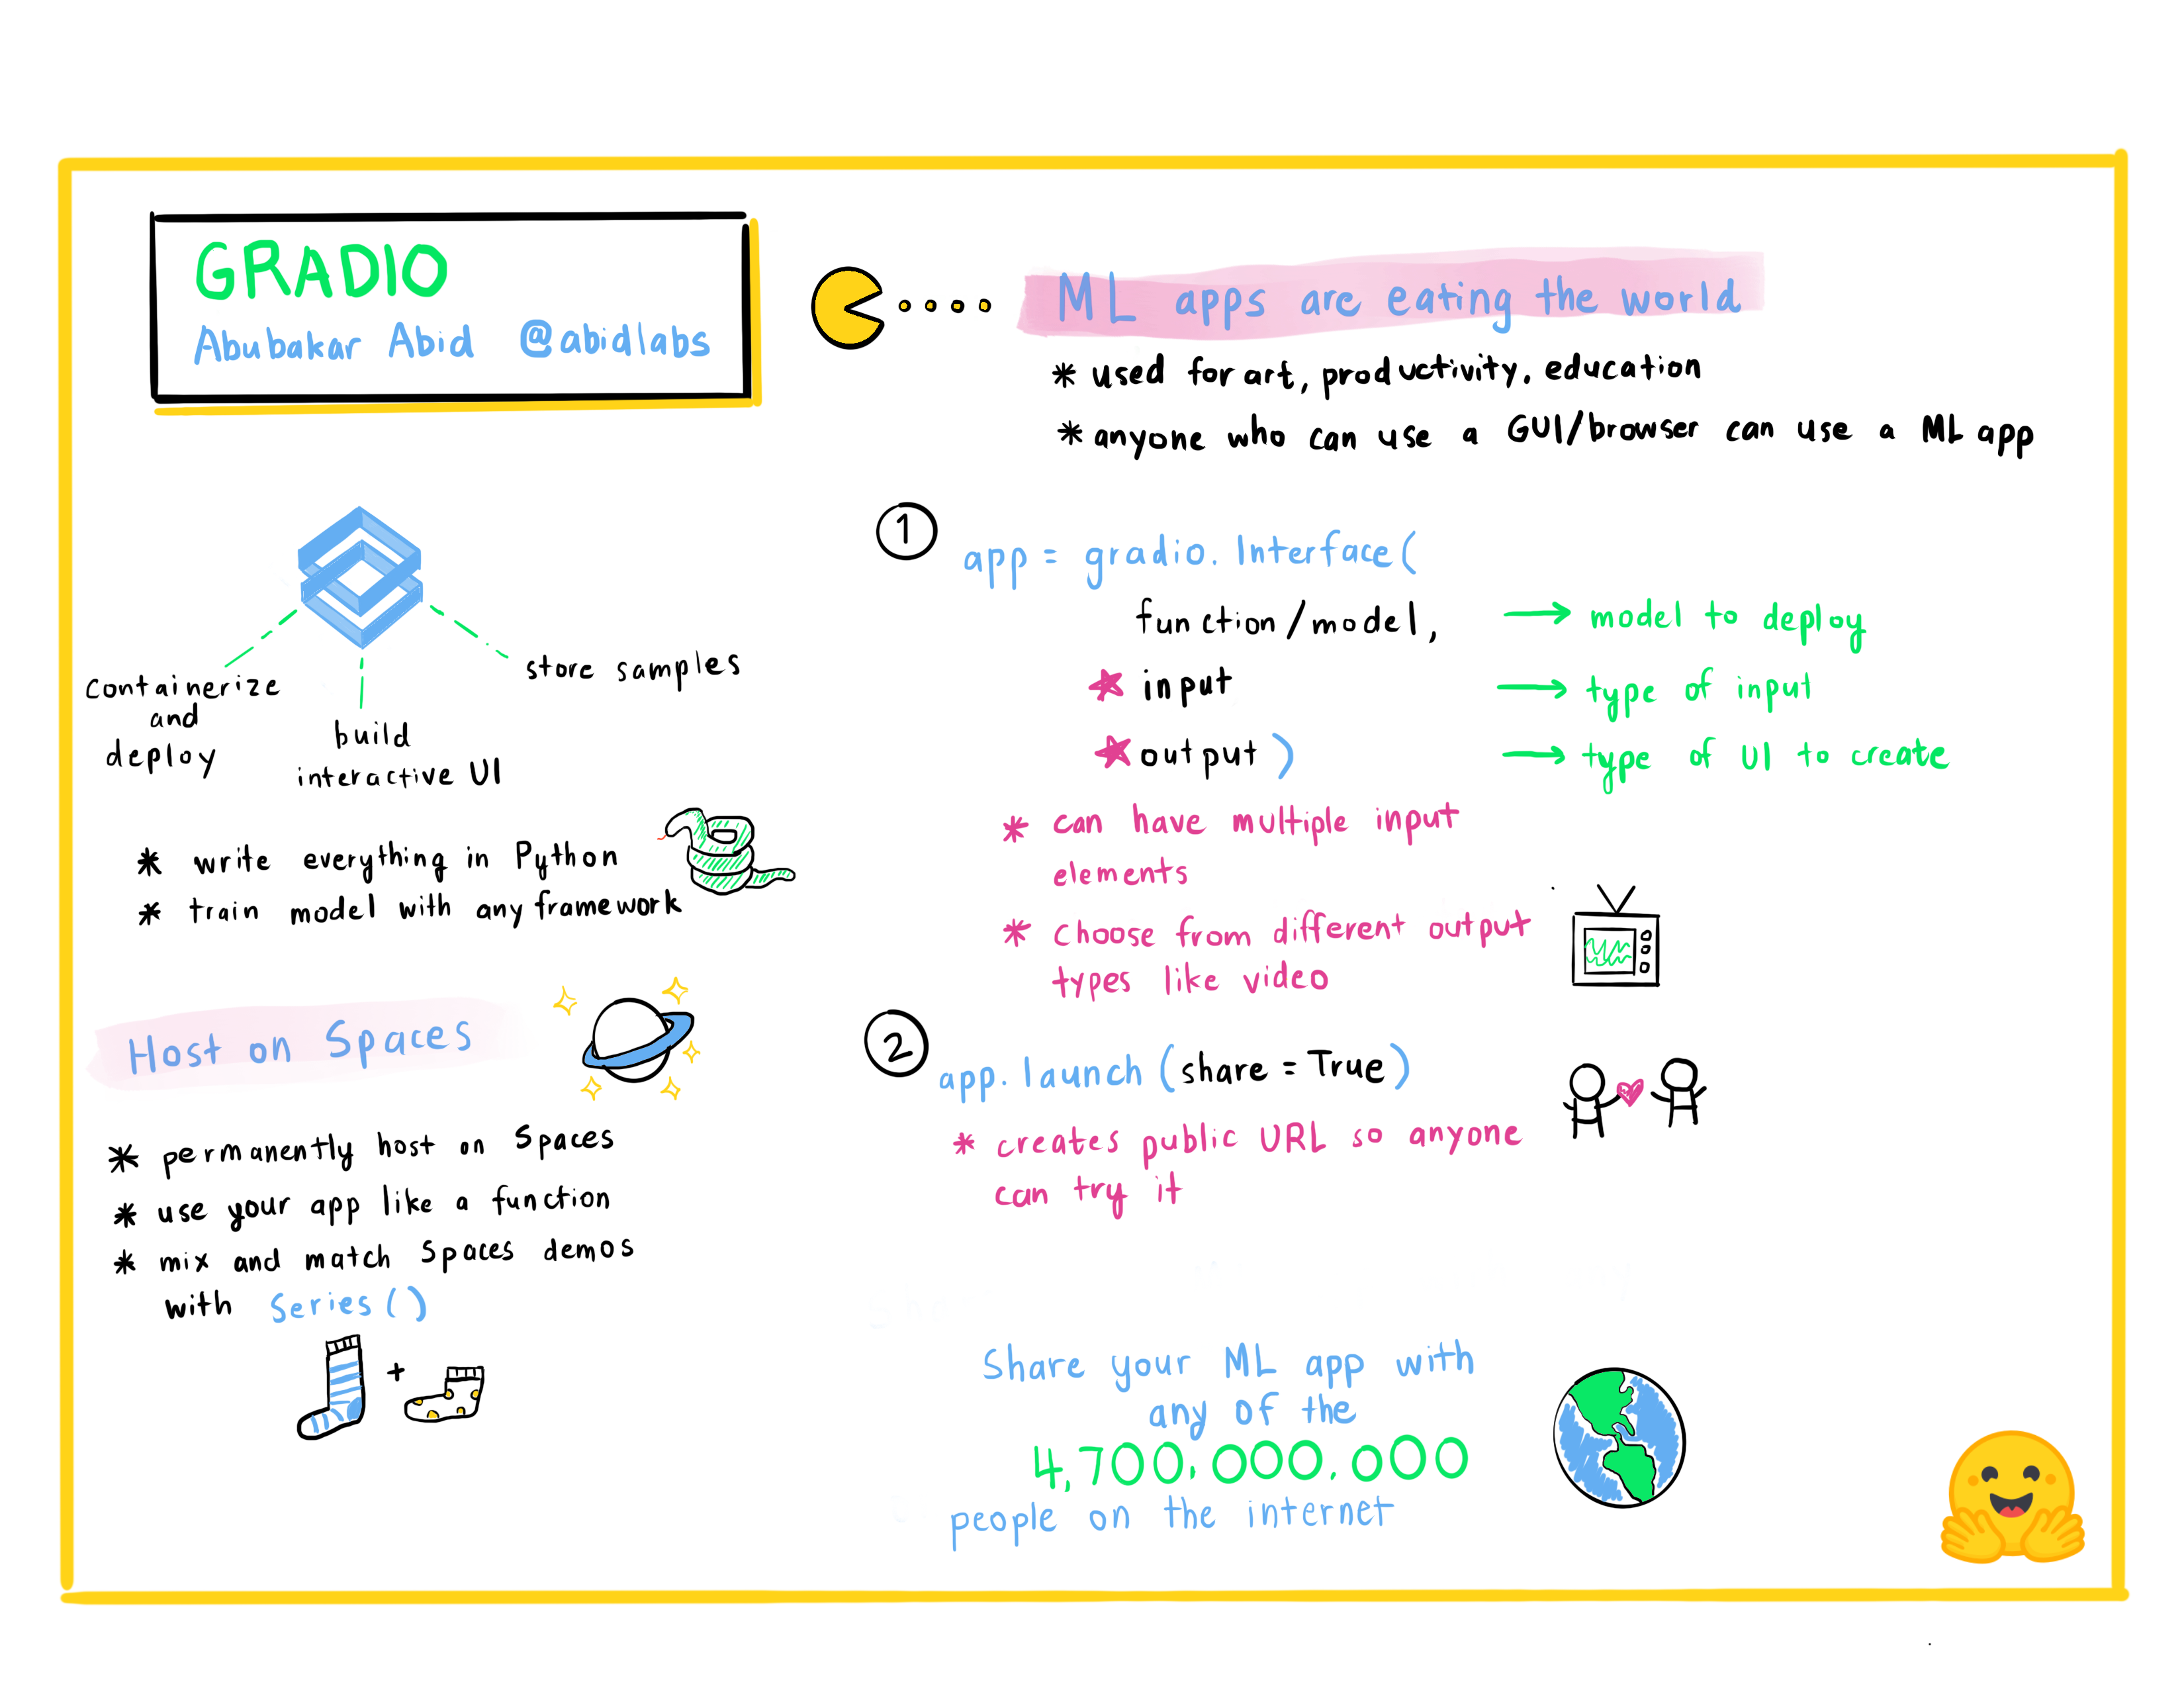 GRADIO
Abubakar Abid @abidlabs
containerize
and
deploy
build
interactive UI
store samples
* write everything in Python
* train model with any framework
Host on Spaces
* permanently host on Spaces
* use your app like a function
* mix and match Spaces demos
with Series()
+
ML apps are eating the world
* used for art, productivity, education
* anyone who can use a GUI/browser can use a ML app
1
app = gradio.Interface(
function/model, → model to deploy
★ input → type of input
★ output) → type of UI to create
* can have multiple input
elements
* choose from different output
types like video
2
app.launch(share = True)
* creates public URL so anyone
can try it
Share your ML app with
any of the
4,700,000,000
people on the internet